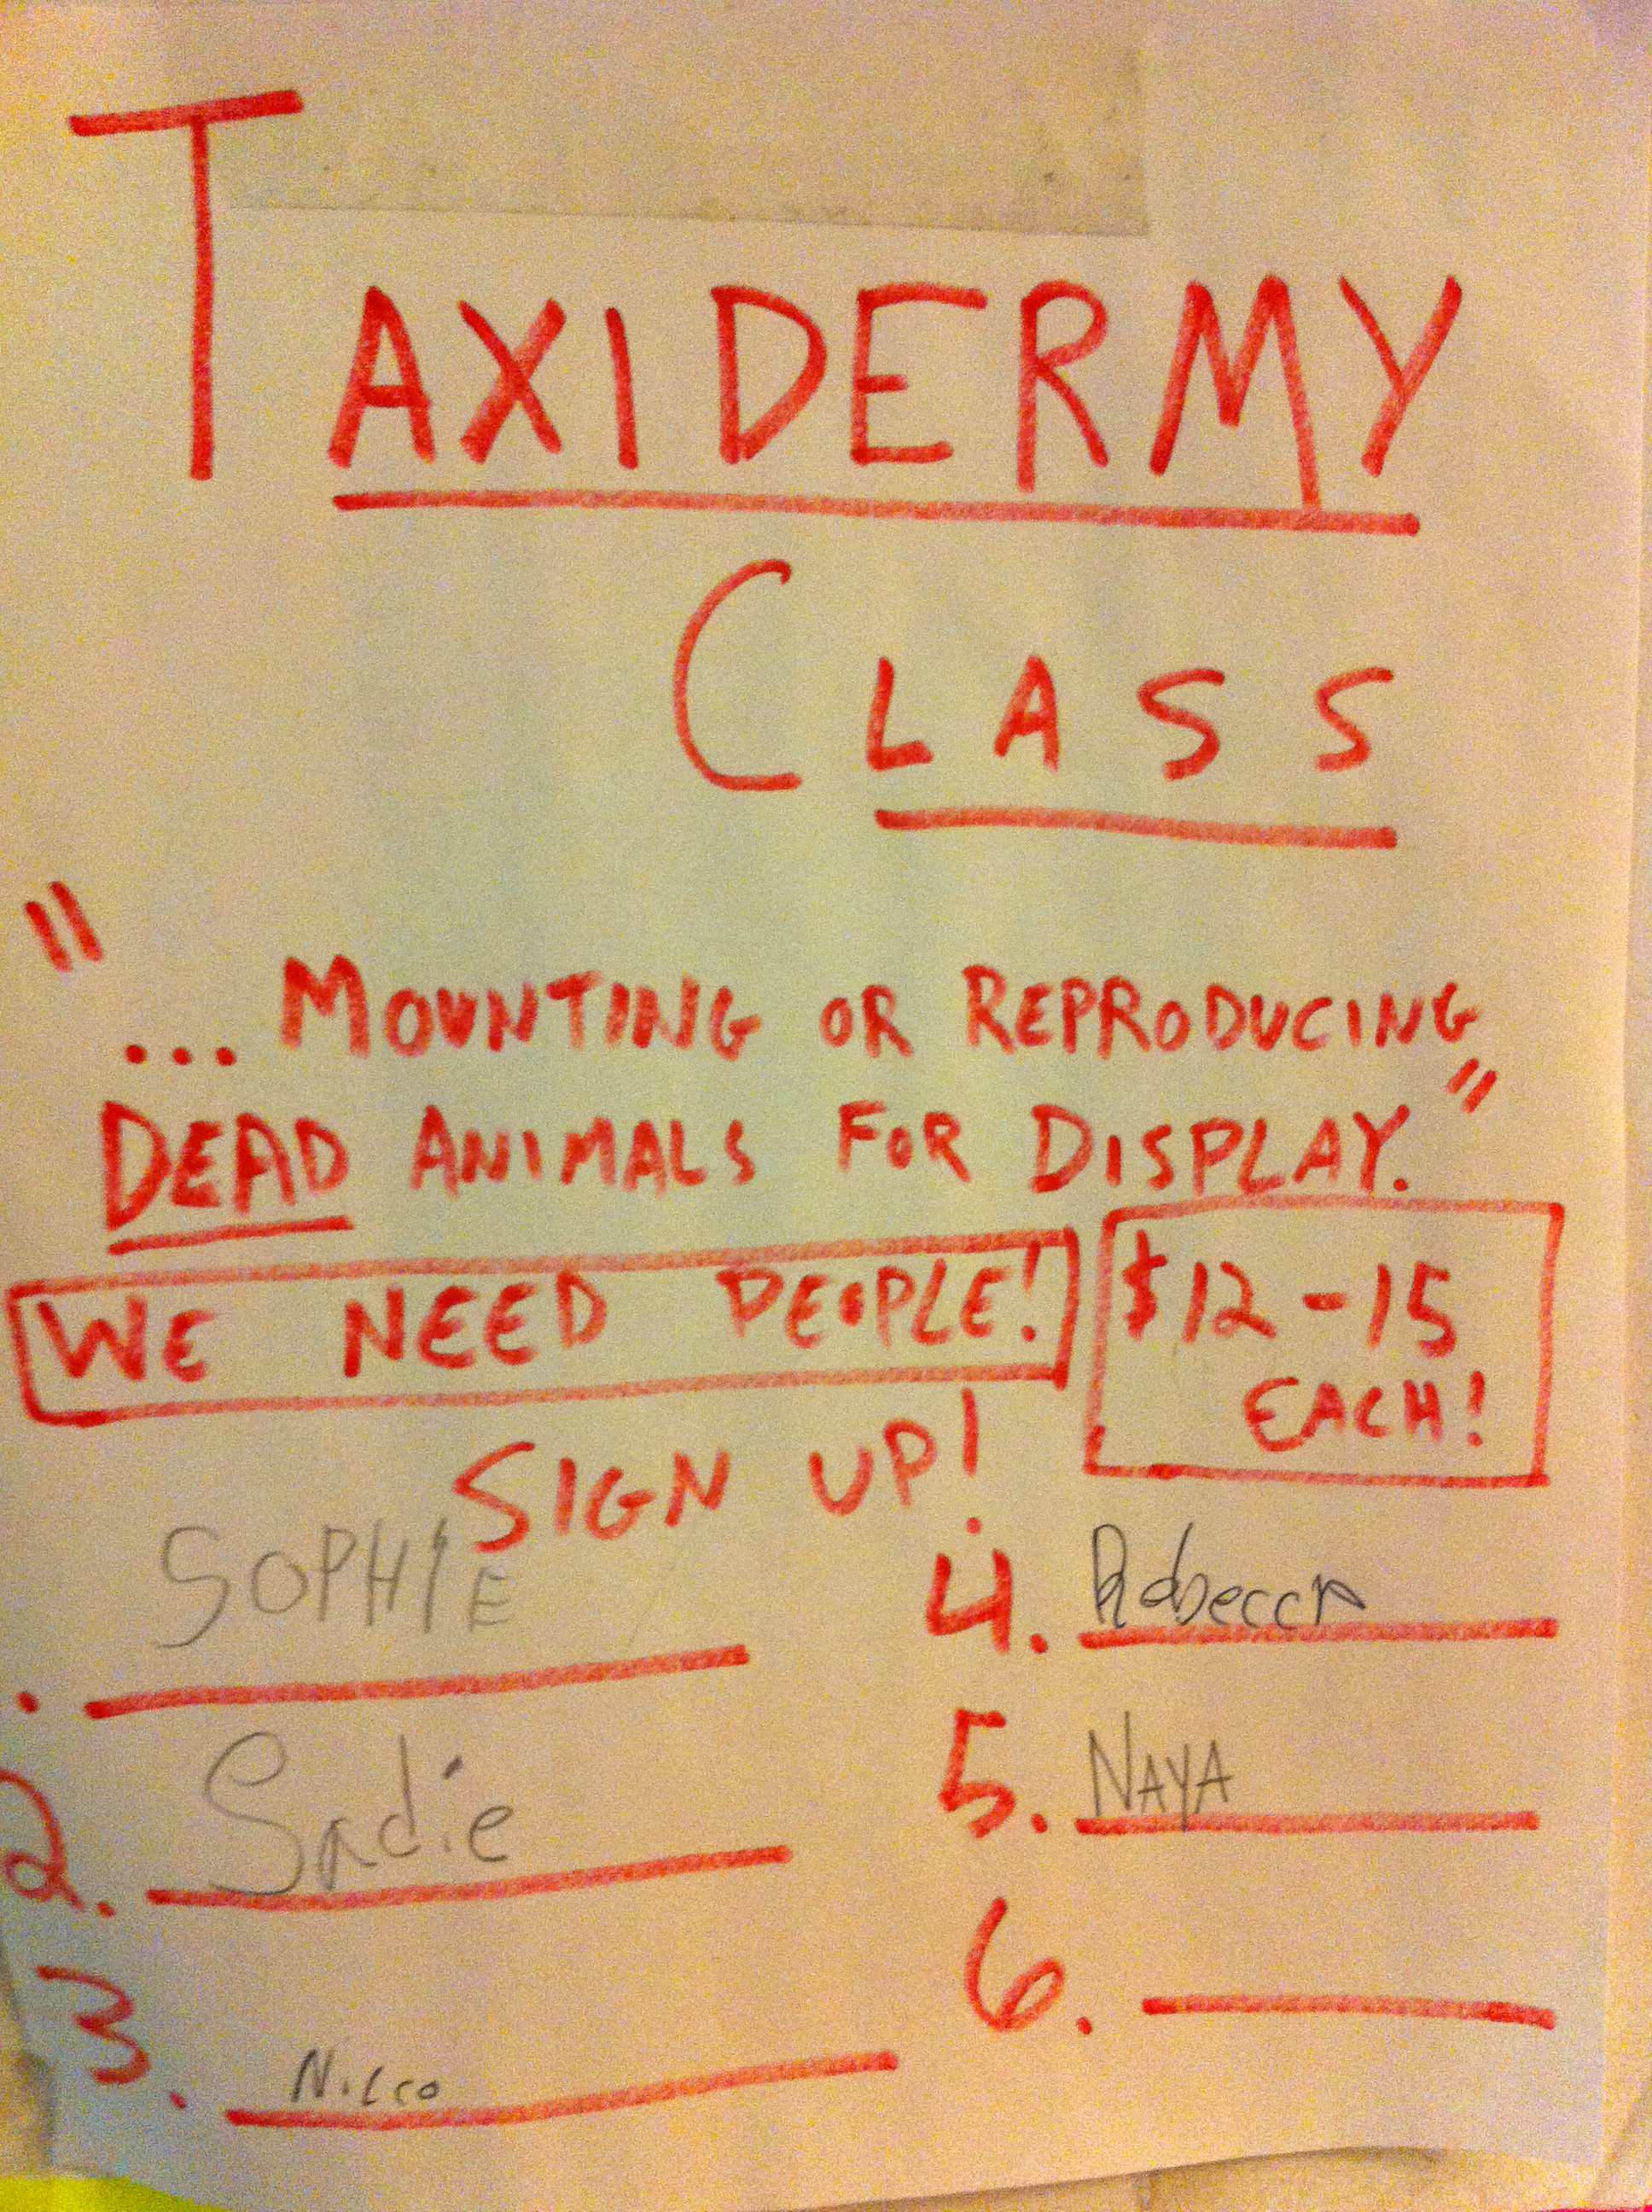 TAXIDERMY
CLASS
"... MOUNTING OR REPRODUCING
DEAD ANIMALS FOR DISPLAY."
WE NEED PEOPLE!
$12-15
EACH!
SIGN UP!
. SOPHIE
2. Sadie
3.
4. Rebecca
5. NAYA
6.